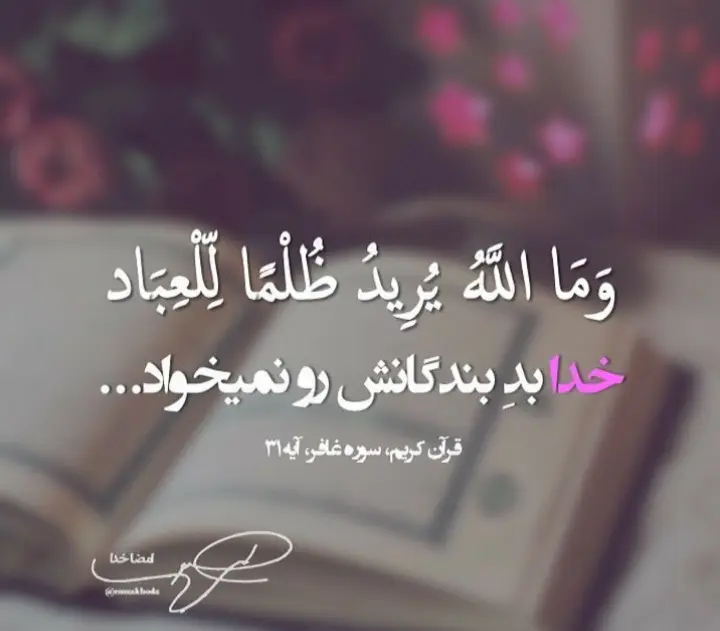 وَمَا اللَّهُ يُرِيدُ ظُلْمًا لِّلْعِبَاد
خدا بدِ بندگانش رو نمیخواد...
قرآن کریم، سوره غافر، آیه ۳۱
امضا خدا